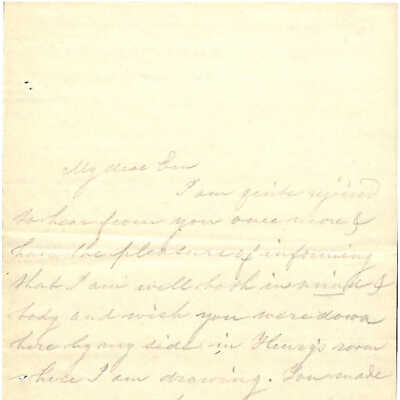 My dear Em
I am quite rejoiced
to hear from you once more &
have the pleasure of informing
that I am well both in mind &
body and wish you were down
here by my side in Henry's room
where I am drawing. You made